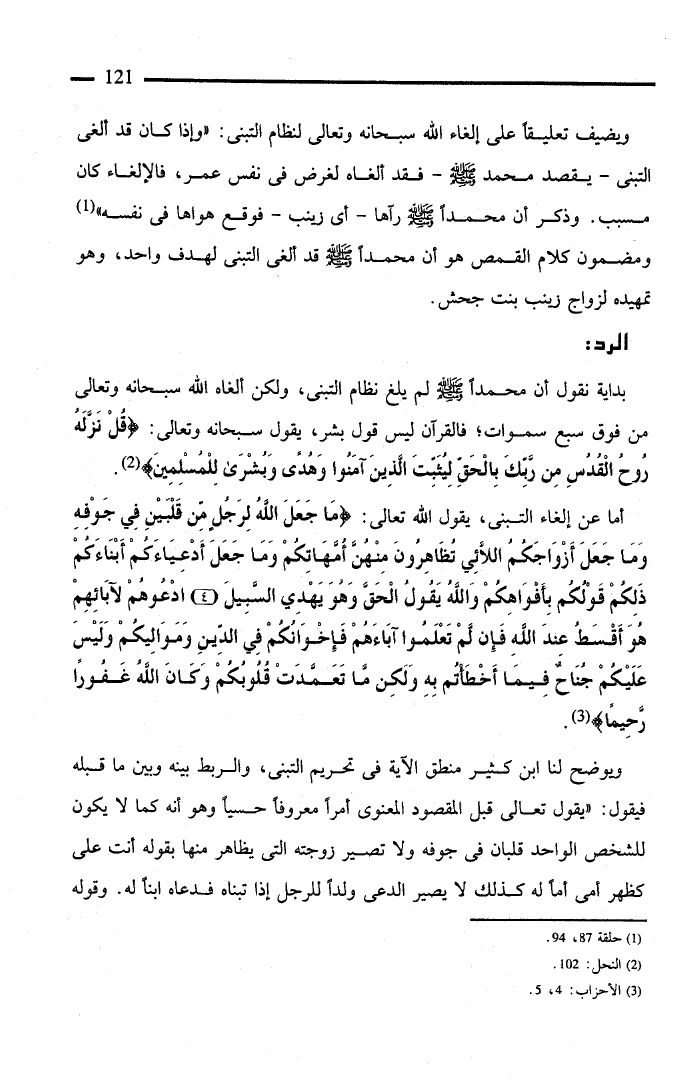 121
ويضيف تعليـقاً على إلغاء الله سبـحانه وتعالى لنظام التبنى: «وإذا كـان قد ألغى
التبنى - يـقصد مـحمد ﷺ - فـقد ألغـاه لغرض فى نفس عمـر، فالإلغـاء كان
مـسبب. وذكـر أن محـمـداً ﷺ رآها - أى زينب - فوقـع هواها فى نفسـه»(1)
ومضـمون كلام القـمص هو أن محمـداً ﷺ قد ألغى التبنى لهـدف واحد، وهو
تمهيده لزواج زينب بنت جحش.
الرد:
بداية نقول أن محـمداً ﷺ لم يلغ نظام التبنى، ولكن ألغاه الله سبـحانه وتعالى
من فوق سبع سمـوات؛ فالقرآن ليس قول بشر، يقول سـبحانه وتعالى: ﴿قُلْ نَزَّلَهُ
رُوحُ الْقُدُسِ مِن رَّبِّكَ بِالْحَقِّ لِيُثَبِّتَ الَّذِينَ آمَنُوا وَهُدًى وَبُشْرَىٰ لِلْمُسْلِمِينَ﴾(2).
أما عن إلغاء التـبنى، يقول الله تعالى: ﴿مَا جَعَلَ اللَّهُ لِرَجُلٍ مِّن قَلْبَيْنِ فِي جَوْفِهِ
وَمَا جَعَلَ أَزْوَاجَكُمُ اللاَّئِي تُظَاهِرُونَ مِنْهُنَّ أُمَّهَاتِكُمْ وَمَا جَعَلَ أَدْعِيَاءَكُمْ أَبْنَاءَكُمْ
ذَلِكُمْ قَوْلُكُم بِأَفْوَاهِكُمْ وَاللَّهُ يَقُولُ الْحَقَّ وَهُوَ يَهْدِي السَّبِيلَ (٤) ادْعُوهُمْ لآبَائِهِمْ
هُوَ أَقْسَطُ عِندَ اللَّهِ فَإِن لَّمْ تَعْلَمُوا آبَاءَهُمْ فَإِخْوَانُكُمْ فِي الدِّينِ وَمَوَالِيكُمْ وَلَيْسَ
عَلَيْكُمْ جُنَاحٌ فِيمَا أَخْطَأْتُم بِهِ وَلَكِن مَّا تَعَمَّدَتْ قُلُوبُكُمْ وَكَانَ اللَّهُ غَفُورًا
رَّحِيمًا﴾(3).
ويوضح لنا ابن كـثيـر منطق الآية فى تحريم التبنى، والـربط بينه وبين ما قـبله
فيقول: «يقول تعـالى قبل المقصود المعنوى أمراً معروفاً حـسياً وهو أنه كما لا يكون
للشخص الواحد قلبان فى جوفه ولا تصـير زوجته التى يظاهر منها بقوله أنت على
كظهر أمى أماً له كـذلك لا يصير الدعى ولداً للرجل إذا تبناه فـدعاه ابناً له. وقوله
(1) حلقة 87، 94.
(2) النحل: 102.
(3) الأحزاب: 4، 5.